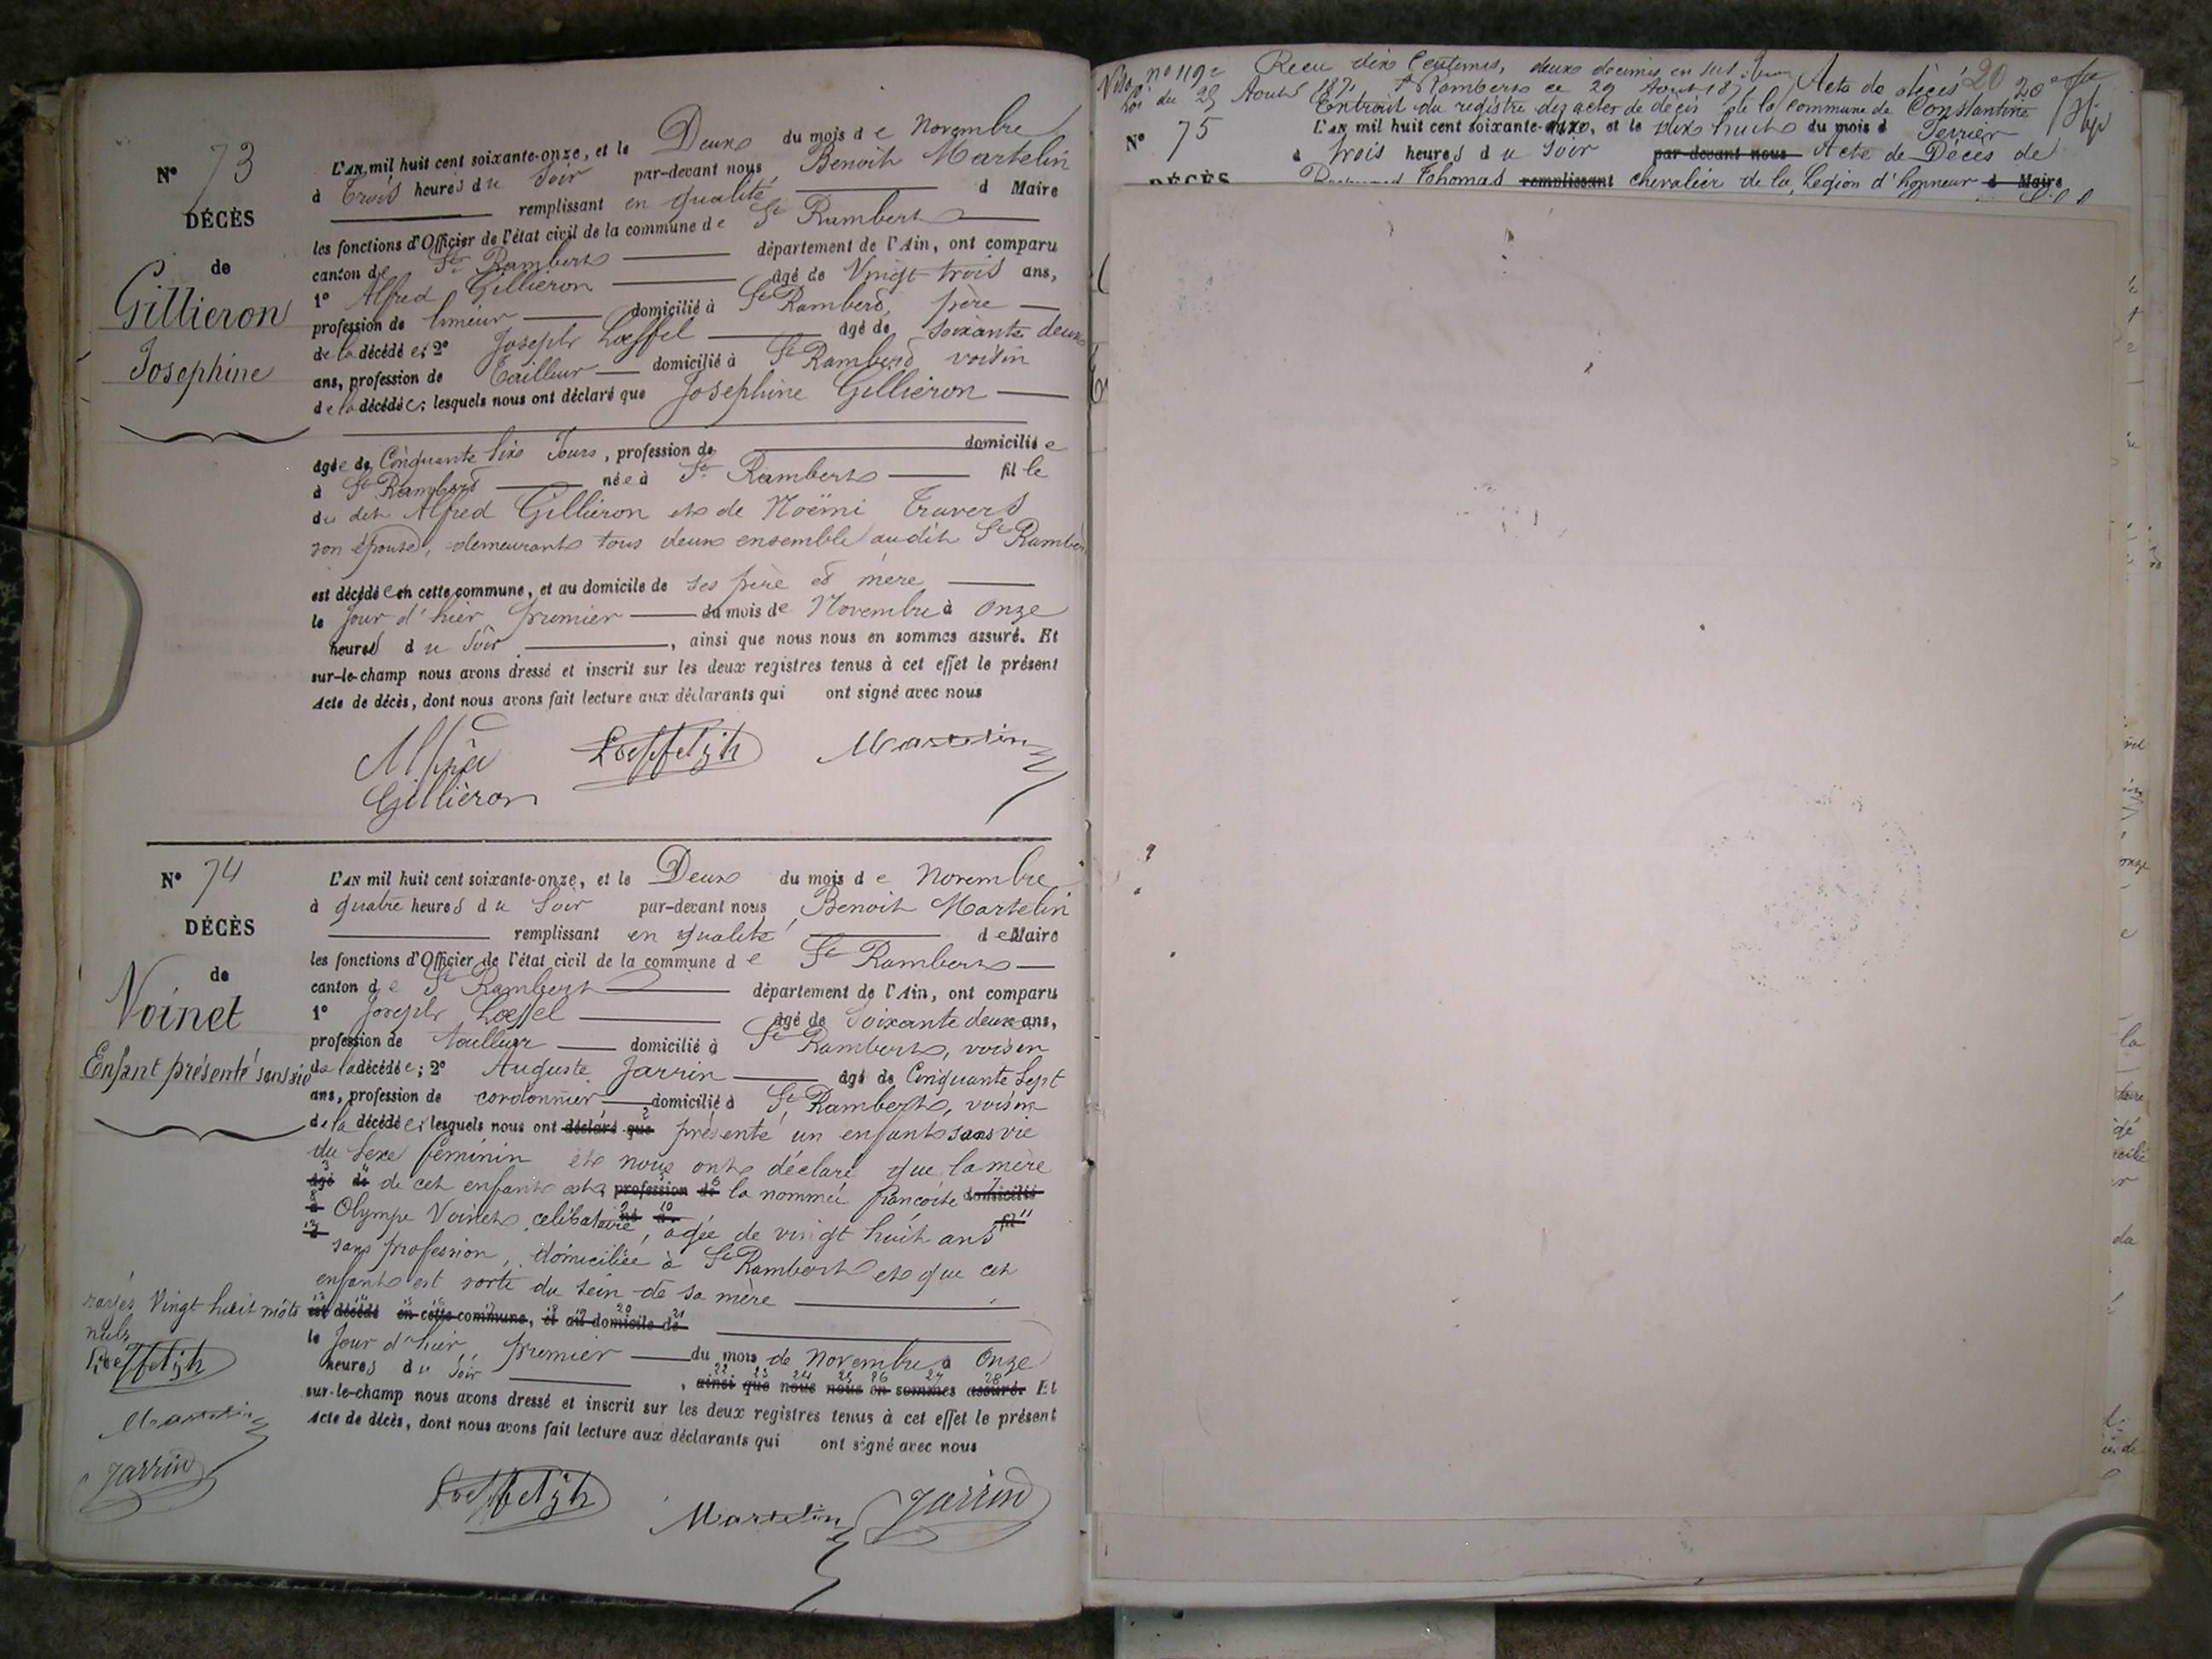 N° 73
DÉCÈS
de
Gillieron
Josephine
L'AN mil huit cent soixante-onze, et le Deux du mois de Novembre
à Trois heures du Soir par-devant nous Benoit Martelin
remplissant en qualité d Maire
les fonctions d'Officier de l'état civil de la commune de St Rambert
canton de St Rambert département de l'Ain, ont comparu
1° Alfred Gillieron âgé de Vingt trois ans,
profession de limeur domicilié à St Rambert, père
de la décédée; 2° Joseph Lœffel âgé de Soixante deux
ans, profession de Tailleur domicilié à St Rambert voisin
de la décédée; lesquels nous ont déclaré que Josephine Gillieron
âgée de Cinquante Six Jours, profession de domiciliée
à St Rambert née à St Rambert fille
du dit Alfred Gilliéron et de Noëmi Travers
son épouse, demeurant tous deux ensemble audit St Rambert
est décédée en cette commune, et au domicile de ses père et mère
le Jour d'hier premier du mois de Novembre à Onze
heures du Soir, ainsi que nous nous en sommes assuré. Et
sur-le-champ nous avons dressé et inscrit sur les deux registres tenus à cet effet le présent
Acte de décès, dont nous avons fait lecture aux déclarants qui ont signé avec nous
Martelin
Gilliéron
N° 74
DÉCÈS
de
Voinet
Enfant présenté sans vie
L'AN mil huit cent soixante-onze, et le Deux du mois de Novembre
à quatre heures du Soir par-devant nous Benoit Martelin
remplissant en qualité de Maire
les fonctions d'Officier de l'état civil de la commune de St Rambert
canton de St Rambert département de l'Ain, ont comparu
1° Joseph Lœffel âgé de Soixante deux ans,
profession de tailleur domicilié à St Rambert, voisin
de la décédée; 2° Auguste Jarrin âgé de Cinquante Sept
ans, profession de cordonnier domicilié à St Rambert, voisin
de la décédée; lesquels nous ont déclaré que présenté un enfant sans vie
du sexe féminin et nous ont déclaré que la mère
âgé de de cet enfant est profession de la nommée françoise domicilié
à Olympe Voinet célibataire né à, agée de vingt huit ans fil
sans profession, domiciliée à St Rambert et que cet
enfant est sorti du sein de sa mère
est décédé en cette commune, et au domicile de
le Jour d'hier, premier du mois de Novembre à Onze
heures du Soir, ainsi que nous nous en sommes assuré. Et
sur-le-champ nous avons dressé et inscrit sur les deux registres tenus à cet effet le présent
Acte de décès, dont nous avons fait lecture aux déclarants qui ont signé avec nous
rayés Vingt huit mots
nuls
Martelin
Jarrin
Martelin Jarrin
n° 119 Recu dix Centimes, deux decimes en sus
Loi du 23 Août 1871 St Rambert ce 29 Août 187 Acte de décès 20
Extrait du registre des actes de décès de la commune de Constantine
N° 75
L'AN mil huit cent soixante-onze, et le dix huit du mois d
à trois heures du Soir par-devant nous Acte de Décès de
DÉCÈS
Thomas remplissant chevalier de la Légion d'honneur d Maire